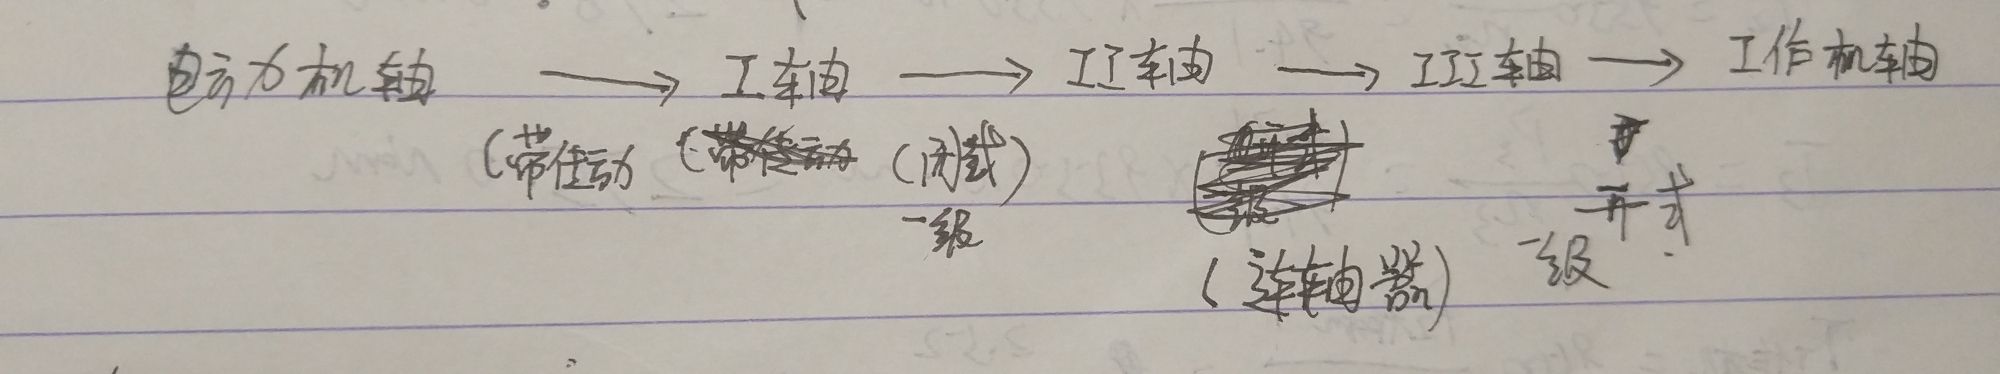 电动力机轴 → I轴 → II轴 → III轴 → 工作机轴
(带传动 (闭式)
一级 开式
(连轴器) 一级